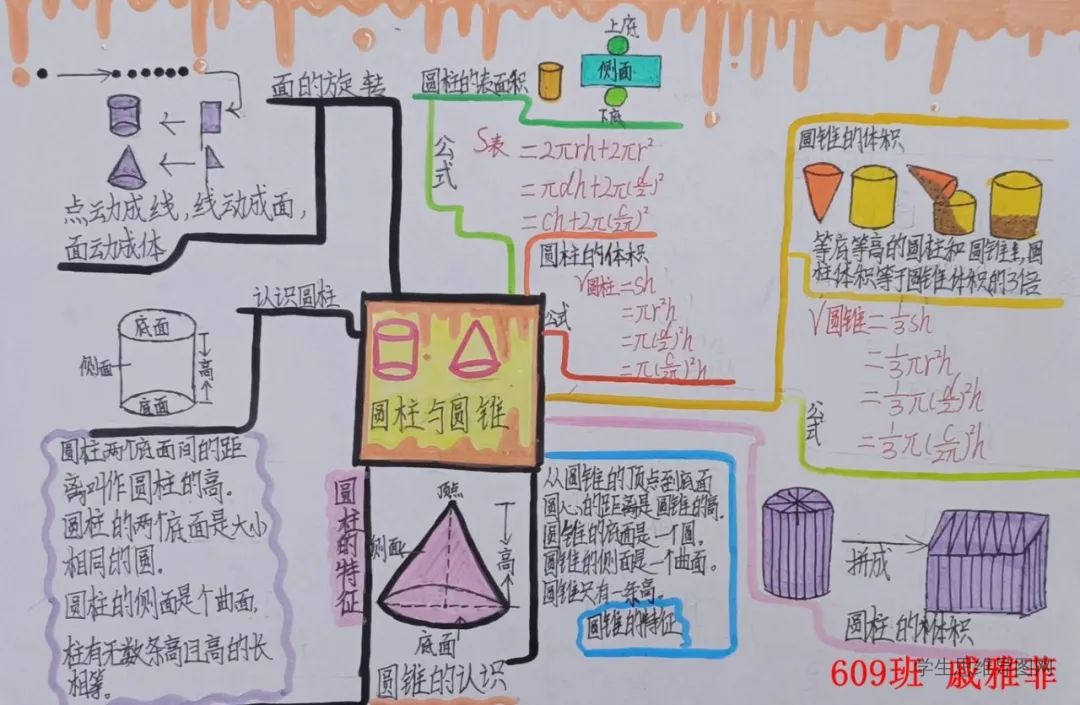 面的旋转
点动成线，线动成面，
面动成体
圆柱的表面积
上底
侧面
下底
公式
S表=2πrh+2πr²
=πdh+2π(d/2)²
=ch+2π(c/2π)²
圆柱的体积
公式
V圆柱=sh
=πr²h
=π(d/2)²h
=π(c/2π)²h
圆锥的体积
等底等高的圆柱和圆锥里,圆
柱体积等于圆锥体积的3倍
公式
V圆锥=1/3sh
=1/3πr²h
=1/3π(d/2)²h
=1/3π(c/2π)²h
认识圆柱
底面
侧面
高
底面
圆柱与圆锥
圆柱两个底面间的距
离叫作圆柱的高。
圆柱的两个底面是大小
相同的圆。
圆柱的侧面是个曲面,
柱有无数条高且高的长
相等。
圆柱的特征
顶点
侧面
高
底面
圆锥的认识
从圆锥的顶点到底面
圆心的距离是圆锥的高.
圆锥的底面是一个圆。
圆锥的侧面是一个曲面。
圆锥只有一条高。
圆锥的特征
拼成
圆柱的体积
609班 戚雅菲